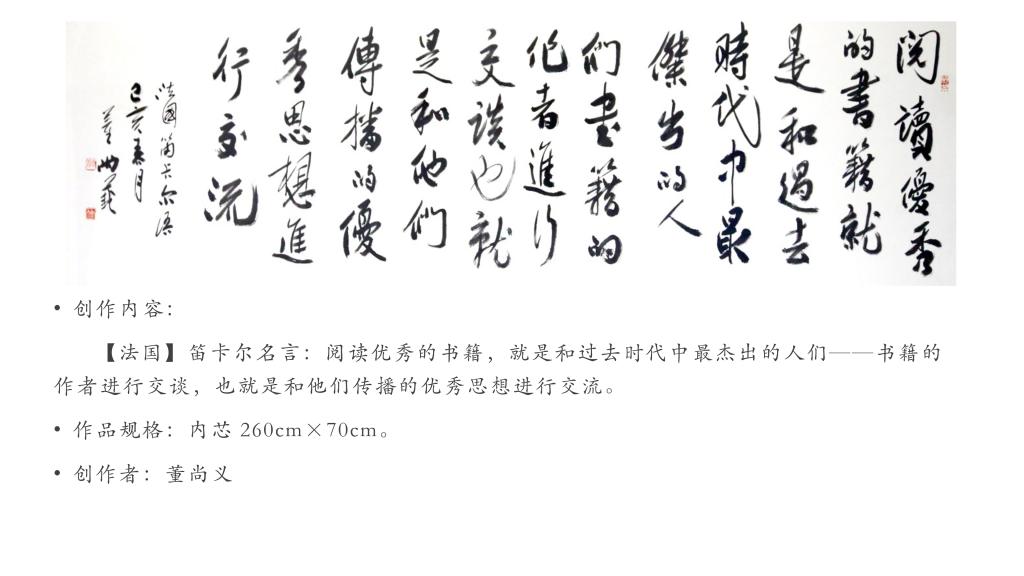 阅讀優秀
的書籍就
是和過去
時代中最
傑出的人
们書籍的
作者進行
交談也就
是和他們
傳播的優
秀思想進
行交流
法国笛卡尔语
己亥春月
董尚義
• 创作内容：
【法国】笛卡尔名言：阅读优秀的书籍，就是和过去时代中最杰出的人们——书籍的
作者进行交谈，也就是和他们传播的优秀思想进行交流。
• 作品规格：内芯 260cm×70cm。
• 创作者：董尚义